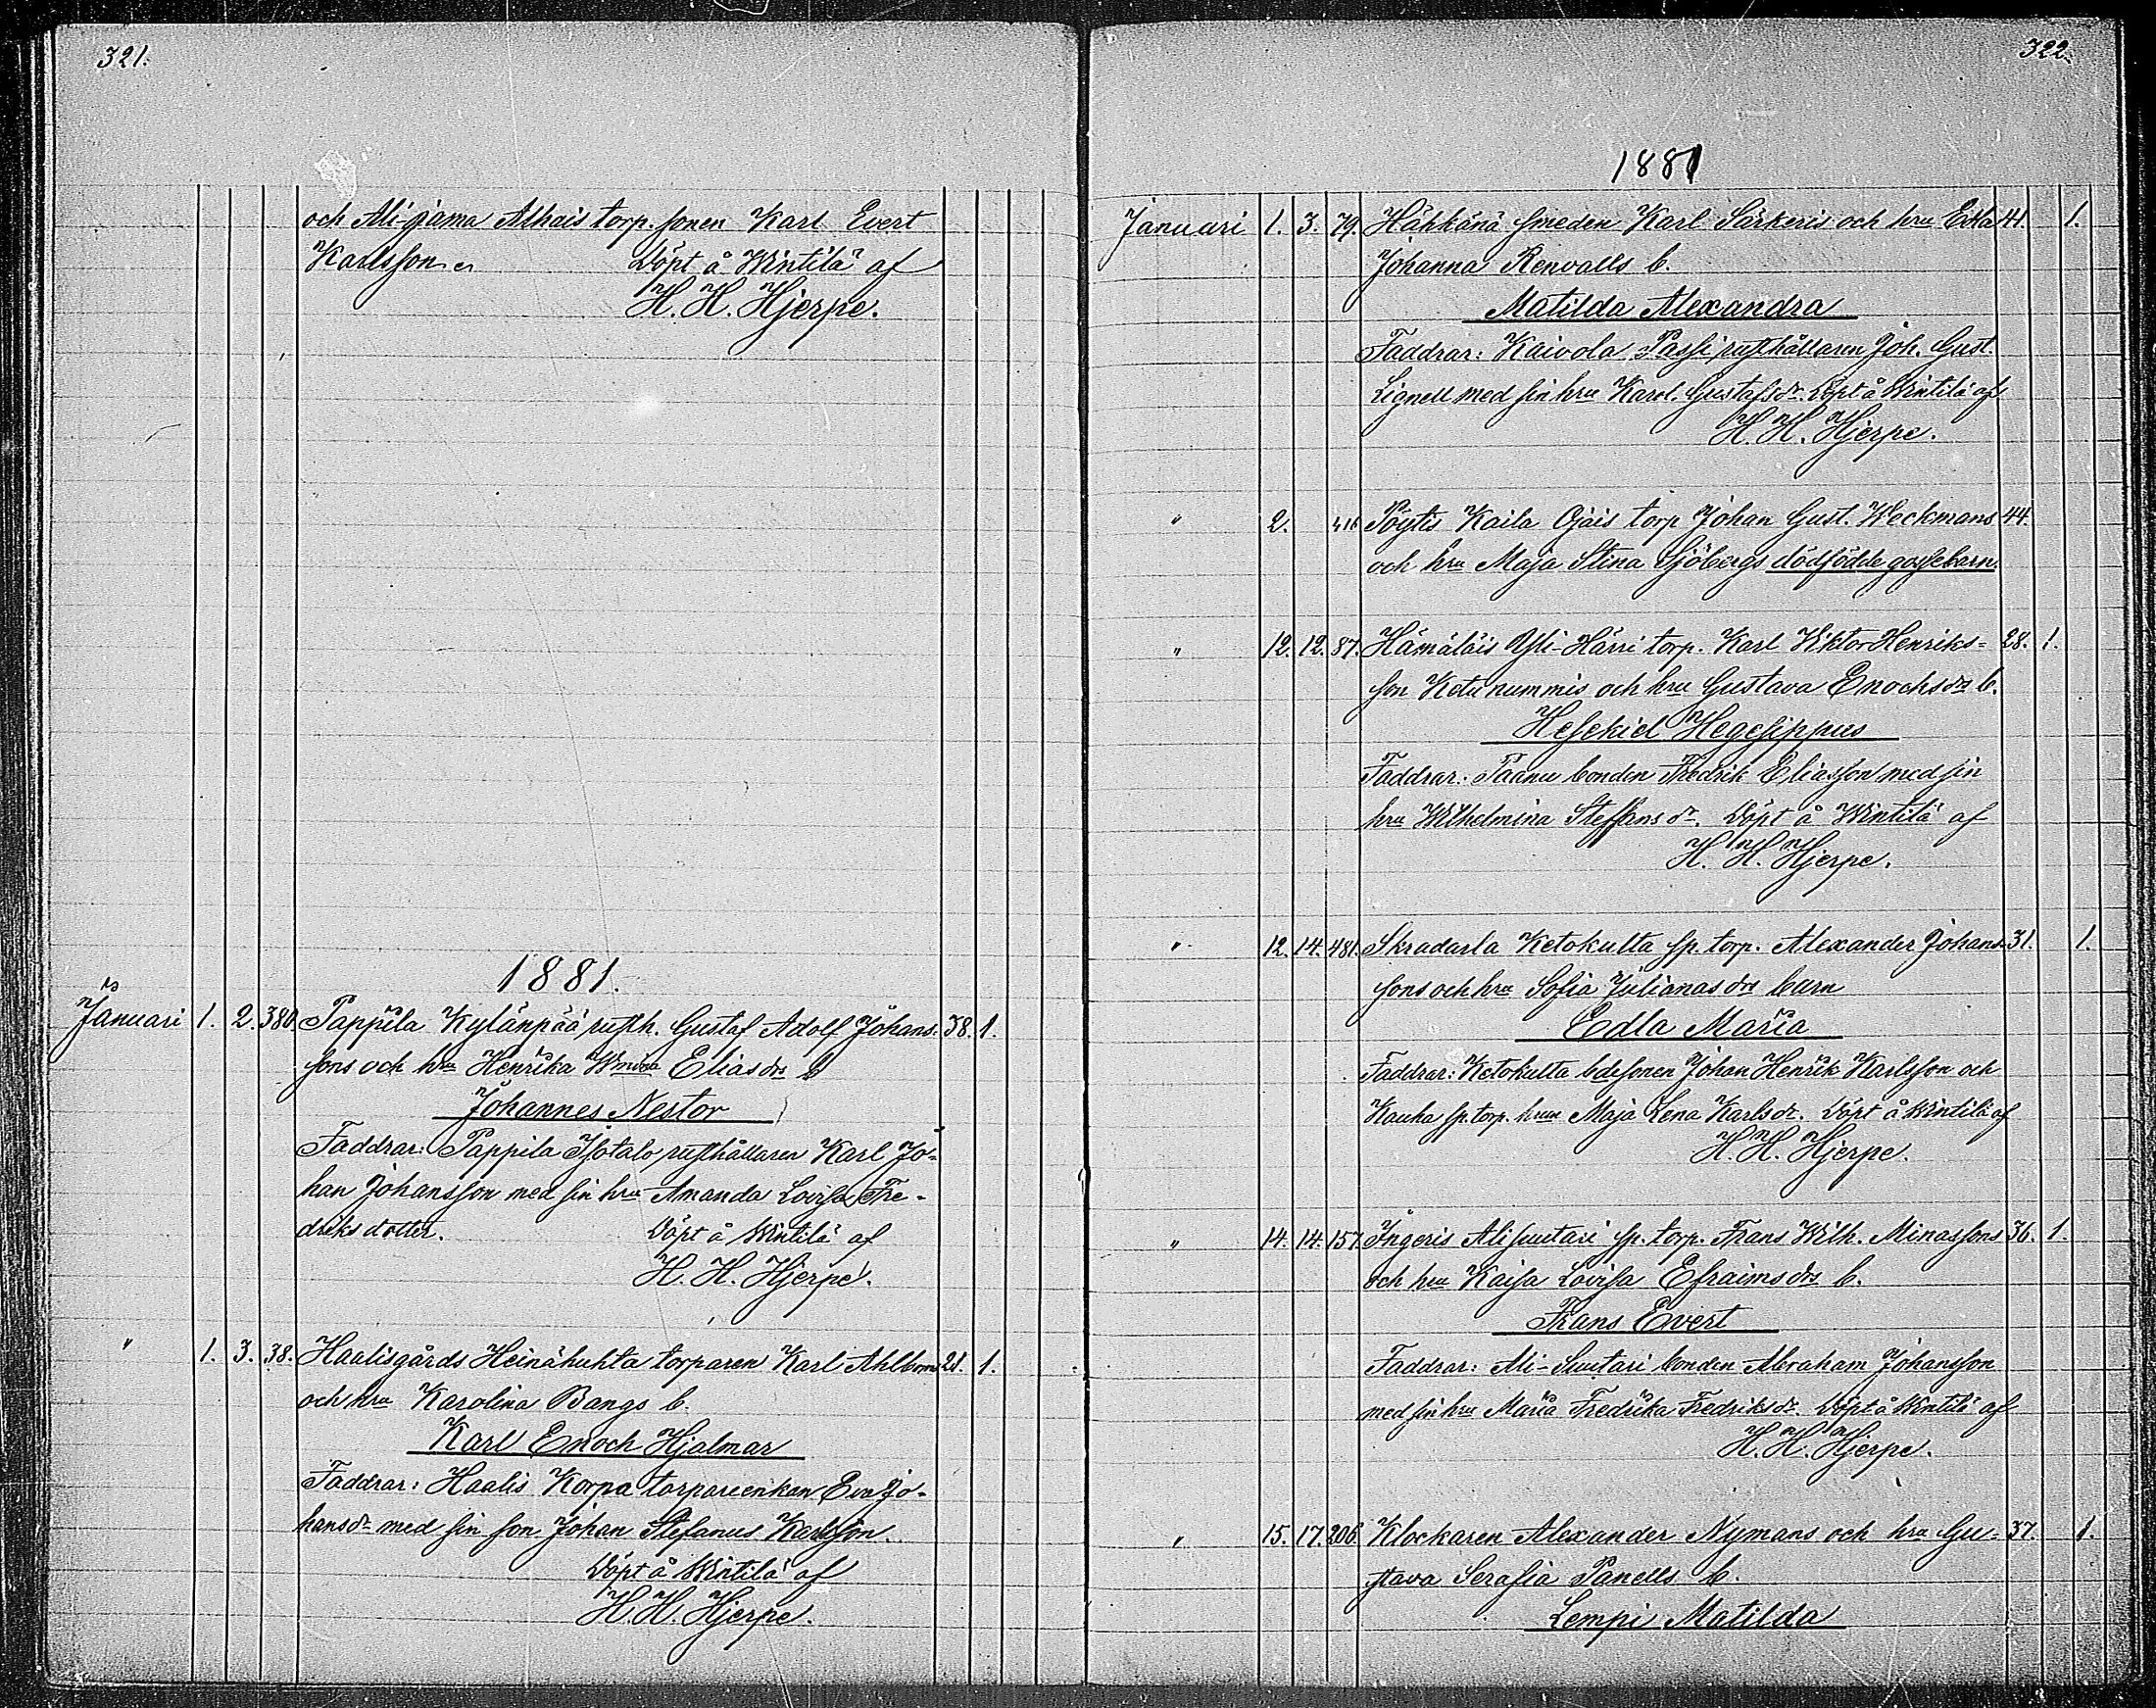 321.
och Ali-jama Alhais torp. sonen Karl Evert
Karlsson. Döpt å Wintilä af
H. H. Hjerpe.
1881.
Januari 1. 2. 380. Pappila Kylänpää rusth. Gustaf Adolf Johans- 38. 1.
sons och hru Henrika Wmina Elias drs b
Johannes Nestor
Faddrar: Pappila Isotalo rusthållaren Karl Jo-
han Johansson med sin hru Amanda Lovisa Fre-
driks dotter. Döpt å Wintilä af
H. H. Hjerpe.
" 1. 3. 38. Haalisgårds Heinähuhta torparen Karl Ahlbom 21. 1.
och hru Karolina Bangs b.
Karl Enoch Hjalmar
Faddrar: Haalis Korpa torpareenkan Eva Jo-
hansdr med sin son Johan Stefanus Karlsson.
Döpt å Wintilä af
H. H. Hjerpe.
322.
1881
Januari 1. 3. 79. Hähkänä smeden Karl Särkeris och hru Edla 41. 1.
Johanna Renvalls b.
Matilda Alexandra
Faddrar: Kaivola Passi rusthållaren Joh. Gust.
Lignell med sin hru Karol. Gustafsdr. Döpt å Wintilä af
H. H. Hjerpe.
" 2. 416 Pöytis Kaila Ojais torp Johan Gust. Weckmans 44.
och hru Maja Stina Sjöbergs dödfödde gossebarn.
" 12. 12. 87. Hämäläis Yli-Härri torp. Karl Viktor Henriks- 28. 1.
son Ketunummis och hru Gustava Enochs drs b.
Hesekiel Hegesippus
Faddrar: Paanu bonden Fredrik Eliasson med sin
hru Wilhelmina Steffans dr. Döpt å Wintilä af
H. H. Hjerpe.
" 12. 14. 481. Skradarla Ketokulta sp. torp. Alexander Johans- 31. 1.
sons och hru Sofia Julianas drs barn
Edla Maria
Faddrar: Ketokulta bdesonen Johan Henrik Karlsson och
Kauha sp. torp. hrun Maja Lena Karlsdr. Döpt å Wintilä af
H. H. Hjerpe.
" 14. 14. 157. Ingeris Alisuutari sp. torp. Frans Wilh. Minassons 36. 1.
och hru Kaisa Lovisa Efraims drs b.
Frans Evert
Faddrar: Ali-Suutari bonden Abraham Johansson
med sin hru Maria Fredrika Fredriksdr. Döpt å Wintilä af
H. H. Hjerpe.
" 15. 17. 206. Klockaren Alexander Nymans och hru Gu- 37. 1.
stava Serafia Panells b.
Lempi Matilda